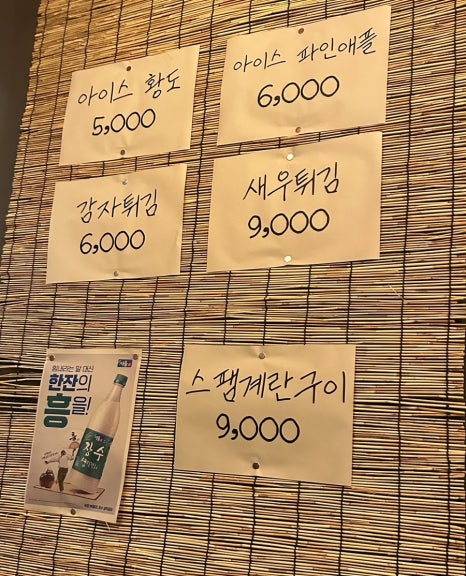 아이스 황도
5,000
아이스 파인애플
6,000
감자튀김
6,000
새우튀김
9,000
스팸계란구이
9,000
힘내라는 말 대신
한잔의
흥을!
장수